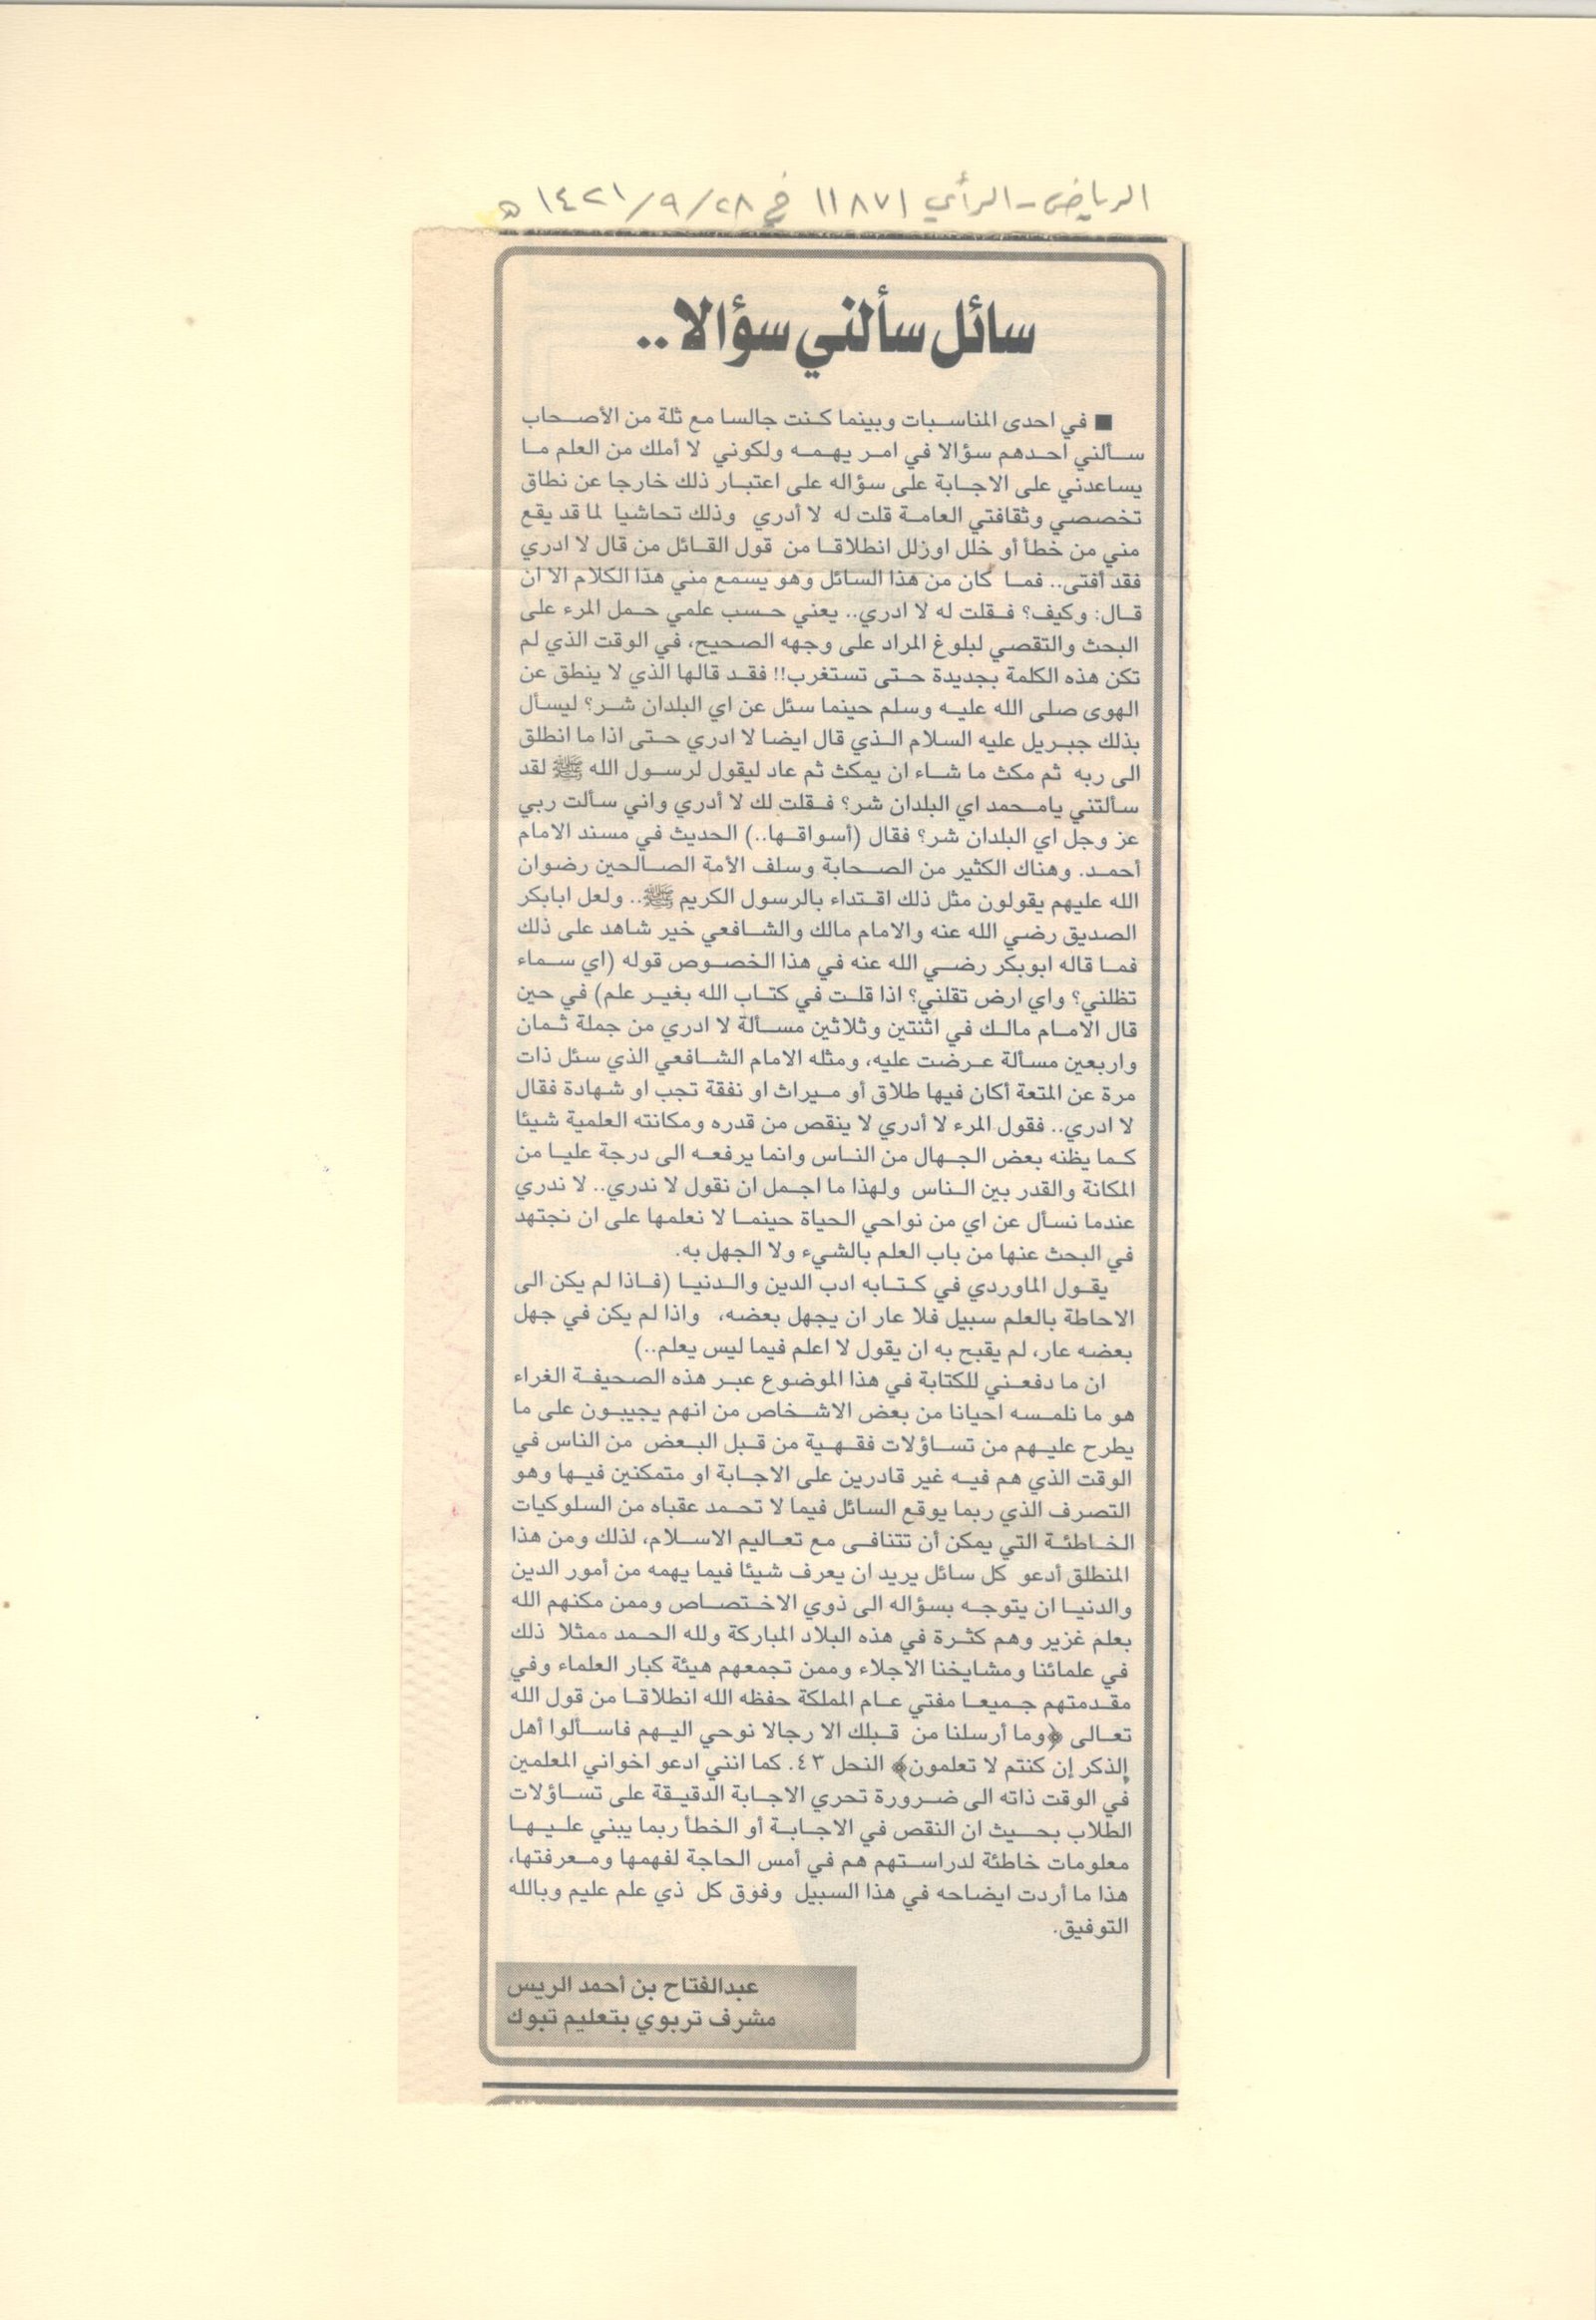 الرياض - الرأي ١١٨٧١ في ١٤٢١/٩/٢٨ هـ
سائل سألني سؤالا ..
■ في احدى المناسبات وبينما كنت جالسا مع ثلة من الأصحاب
سألني احدهم سؤالا في امر يهمه ولكوني لا أملك من العلم ما
يساعدني على الاجابة على سؤاله على اعتبار ذلك خارجا عن نطاق
تخصصي وثقافتي العامة قلت له لا أدري وذلك تحاشيا لما قد يقع
مني من خطأ أو خلل اوزلل انطلاقا من قول القائل من قال لا ادري
فقد أفتى.. فما كان من هذا السائل وهو يسمع مني هذا الكلام الا ان
قال: وكيف؟ فقلت له لا ادري.. يعني حسب علمي حمل المرء على
البحث والتقصي لبلوغ المراد على وجهه الصحيح، في الوقت الذي لم
تكن هذه الكلمة بجديدة حتى تستغرب!! فقد قالها الذي لا ينطق عن
الهوى صلى الله عليه وسلم حينما سئل عن اي البلدان شر؟ ليسأل
بذلك جبريل عليه السلام الذي قال ايضا لا ادري حتى اذا ما انطلق
الى ربه ثم مكث ما شاء ان يمكث ثم عاد ليقول لرسول الله ﷺ لقد
سألتني يامحمد اي البلدان شر؟ فقلت لك لا أدري واني سألت ربي
عز وجل اي البلدان شر؟ فقال (أسواقها..) الحديث في مسند الامام
أحمد. وهناك الكثير من الصحابة وسلف الأمة الصالحين رضوان
الله عليهم يقولون مثل ذلك اقتداء بالرسول الكريم ﷺ.. ولعل ابابكر
الصديق رضي الله عنه والامام مالك والشافعي خير شاهد على ذلك
فما قاله ابوبكر رضي الله عنه في هذا الخصوص قوله (اي سماء
تظلني؟ واي ارض تقلني؟ اذا قلت في كتاب الله بغير علم) في حين
قال الامام مالك في اثنتين وثلاثين مسألة لا ادري من جملة ثمان
واربعين مسألة عرضت عليه، ومثله الامام الشافعي الذي سئل ذات
مرة عن المتعة أكان فيها طلاق أو ميراث او نفقة تجب او شهادة فقال
لا ادري.. فقول المرء لا أدري لا ينقص من قدره ومكانته العلمية شيئا
كما يظنه بعض الجهال من الناس وانما يرفعه الى درجة عليا من
المكانة والقدر بين الناس ولهذا ما اجمل ان نقول لا ندري.. لا ندري
عندما نسأل عن اي من نواحي الحياة حينما لا نعلمها على ان نجتهد
في البحث عنها من باب العلم بالشيء ولا الجهل به.
يقول الماوردي في كتابه ادب الدين والدنيا (فاذا لم يكن الى
الاحاطة بالعلم سبيل فلا عار ان يجهل بعضه، واذا لم يكن في جهل
بعضه عار، لم يقبح به ان يقول لا اعلم فيما ليس يعلم..)
ان ما دفعني للكتابة في هذا الموضوع عبر هذه الصحيفة الغراء
هو ما نلمسه احيانا من بعض الاشخاص من انهم يجيبون على ما
يطرح عليهم من تساؤلات فقهية من قبل البعض من الناس في
الوقت الذي هم فيه غير قادرين على الاجابة او متمكنين فيها وهو
التصرف الذي ربما يوقع السائل فيما لا تحمد عقباه من السلوكيات
الخاطئة التي يمكن أن تتنافى مع تعاليم الاسلام، لذلك ومن هذا
المنطلق أدعو كل سائل يريد ان يعرف شيئا فيما يهمه من أمور الدين
والدنيا ان يتوجه بسؤاله الى ذوي الاختصاص وممن مكنهم الله
بعلم غزير وهم كثرة في هذه البلاد المباركة ولله الحمد ممثلا ذلك
في علمائنا ومشايخنا الاجلاء وممن تجمعهم هيئة كبار العلماء وفي
مقدمتهم جميعا مفتي عام المملكة حفظه الله انطلاقا من قول الله
تعالى ﴿وما أرسلنا من قبلك الا رجالا نوحي اليهم فاسألوا أهل
الذكر إن كنتم لا تعلمون﴾ النحل ٤٣. كما انني ادعو اخواني المعلمين
في الوقت ذاته الى ضرورة تحري الاجابة الدقيقة على تساؤلات
الطلاب بحيث ان النقص في الاجابة أو الخطأ ربما يبني عليها
معلومات خاطئة لدراستهم هم في أمس الحاجة لفهمها ومعرفتها،
هذا ما أردت ايضاحه في هذا السبيل وفوق كل ذي علم عليم وبالله
التوفيق.
عبدالفتاح بن أحمد الريس
مشرف تربوي بتعليم تبوك